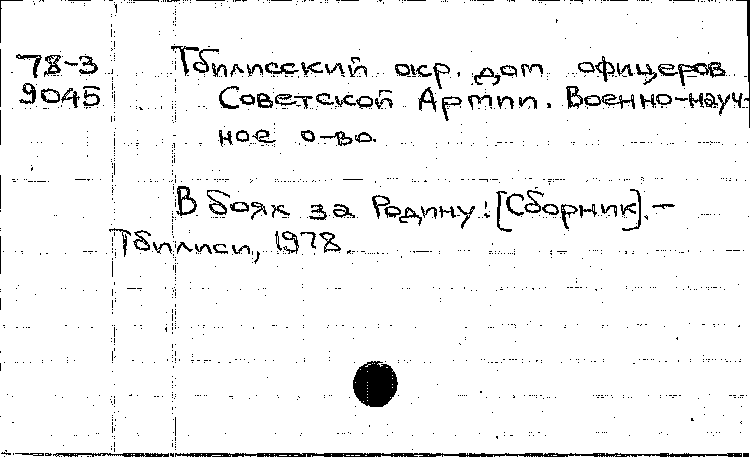 78-3 Тбилисский окр. дом офицеров
9045 Советской Армии. Военно-науч-
ное о-во.
В боях за Родину: [Сборник]. –
Тбилиси, 1978.